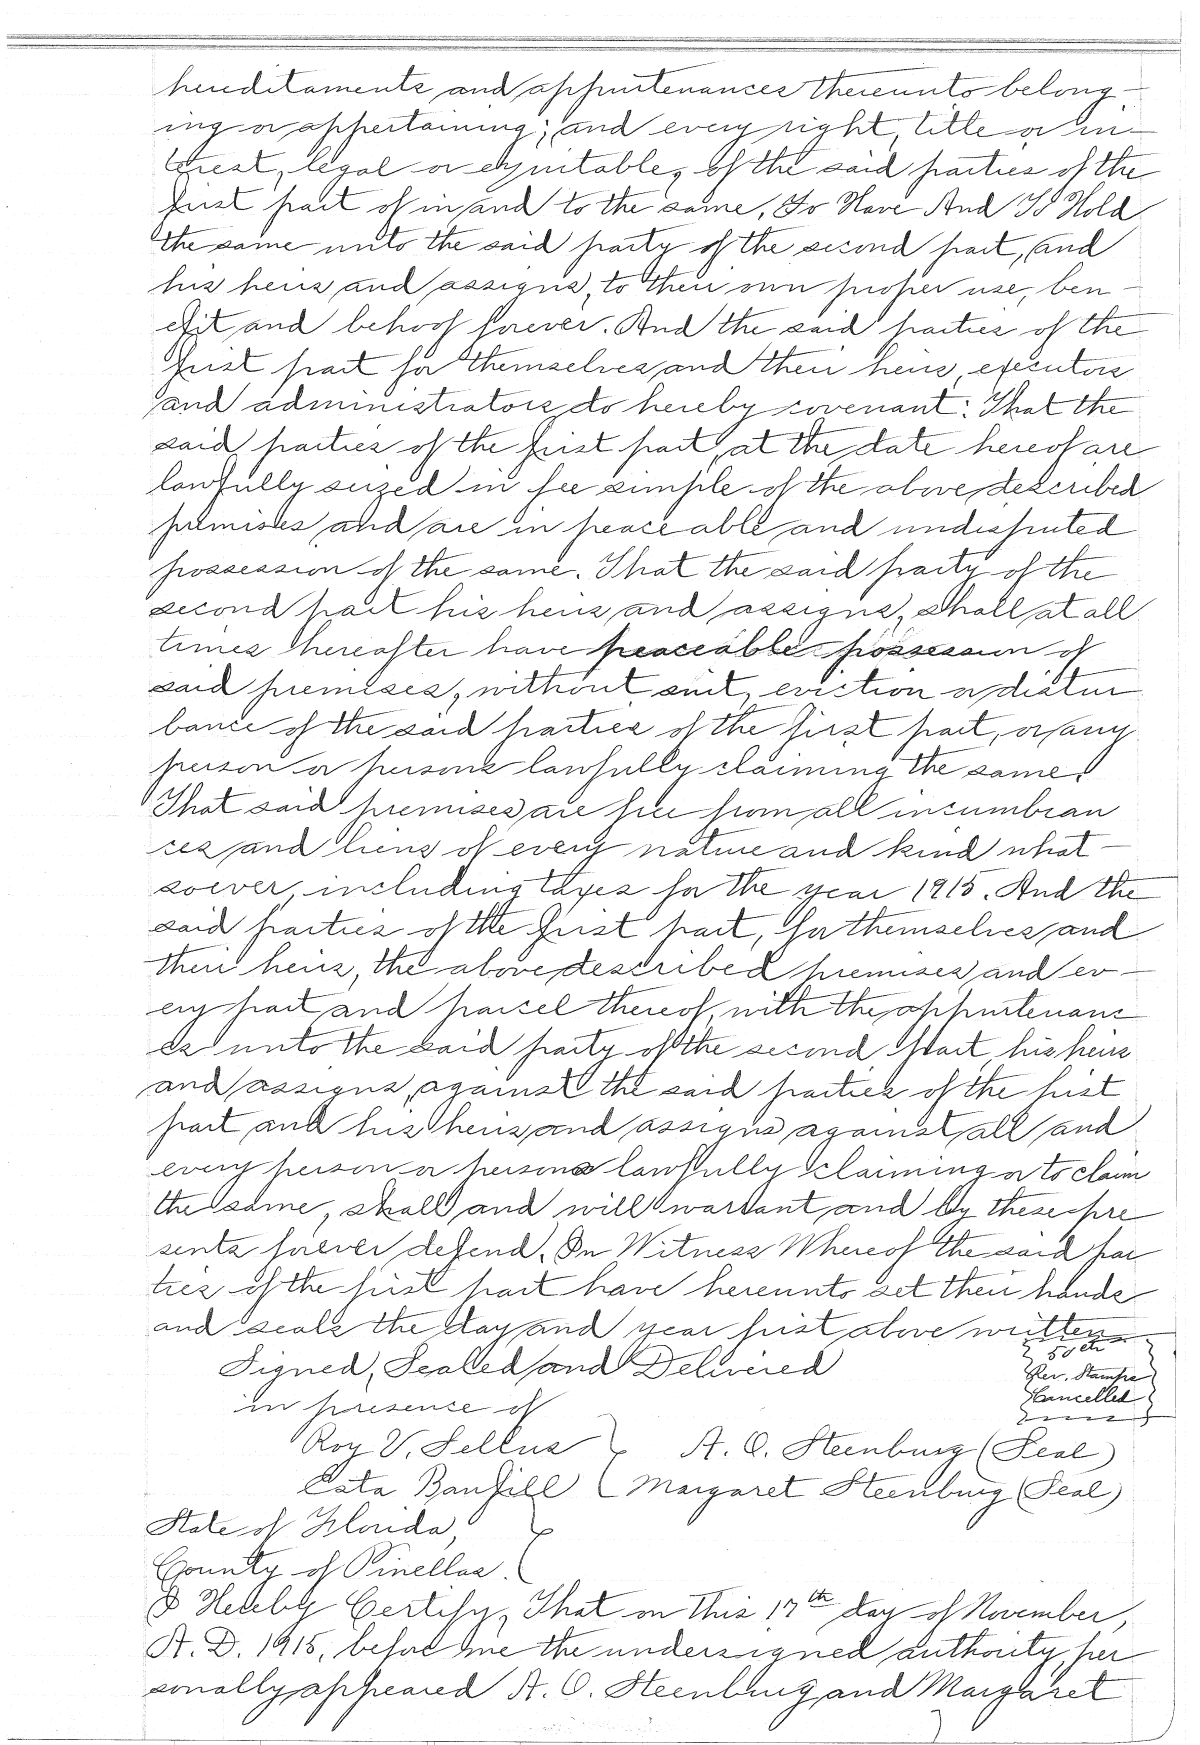 hereditaments and appurtenances thereunto belong-
ing or appertaining; and every right, title or in-
terest, legal or equitable, of the said parties of the
first part of in and to the same, To Have And To Hold
the same unto the said party of the second part, and
his heirs and assigns, to their own proper use, ben-
efit and behoof forever. And the said parties of the
first part for themselves and their heirs, executors
and administrators do hereby covenant: That the
said parties of the first part, at the date hereof are
lawfully seized in fee simple of the above described
premises and are in peaceable and undisputed
possession of the same. That the said party of the
second part his heirs and assigns, shall at all
times hereafter have peaceable possession of
said premises, without suit, eviction or distur
bance of the said parties of the first part, or any
person or persons lawfully claiming the same.
That said premises are free from all incumbran
ces and liens of every nature and kind what-
soever, including taxes for the year 1915. And the
said parties of the first part, for themselves and
their heirs, the above described premises and ev-
ery part and parcel thereof, with the appurtenanc
es unto the said party of the second part, his heirs
and assigns, against the said parties of the first
part and his heirs and assigns against all and
every person or persons lawfully claiming or to claim
the same, shall and will warrant and by these pre
sents forever defend. In Witness Whereof the said par
ties of the first part have hereunto set their hands
and seals the day and year first above written
50cts
Rev. Stamps
Cancelled
Signed, Sealed and Delivered
in presence of
Roy V. Sellus A. O. Steenburg (Seal)
Cata Banfill Margaret Steenburg (Seal)
State of Florida,
County of Pinellas.
I Hereby Certify, That on this 17th day of November,
A. D. 1915, before me the undersigned authority, per
sonally appeared A. O. Steenburg and Margaret